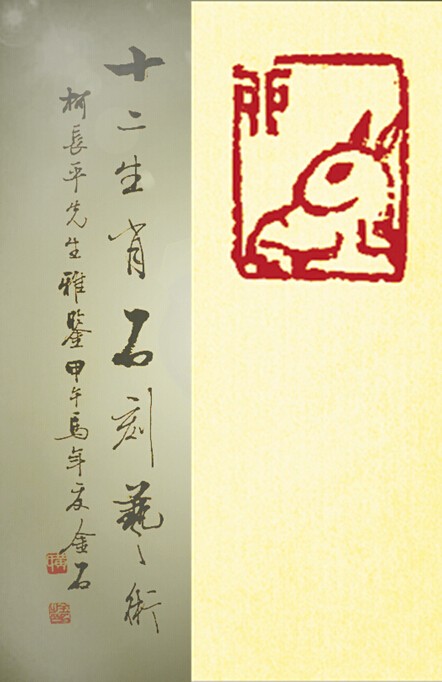 十二生肖石刻藝術
柯長平先生雅鑒甲午馬年夏金石
卯